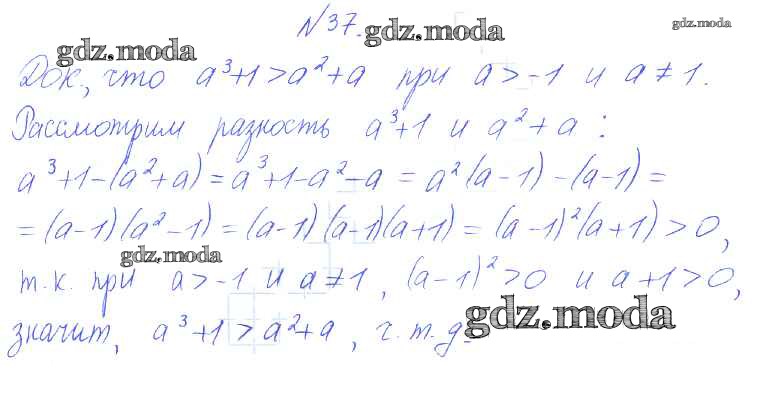 №37.
gdz.moda gdz.moda gdz.moda
Док, что a³+1>a²+a при a>-1 и a≠1.
Рассмотрим разность a³+1 и a²+a :
a³+1-(a²+a)=a³+1-a²-a = a²(a-1)-(a-1)=
=(a-1)(a²-1)=(a-1)(a-1)(a+1)=(a-1)²(a+1)>0,
gdz.moda
т.к. при a>-1 и a≠1, (a-1)²>0 и a+1>0,
gdz.moda
значит, a³+1>a²+a, ч.т.д.